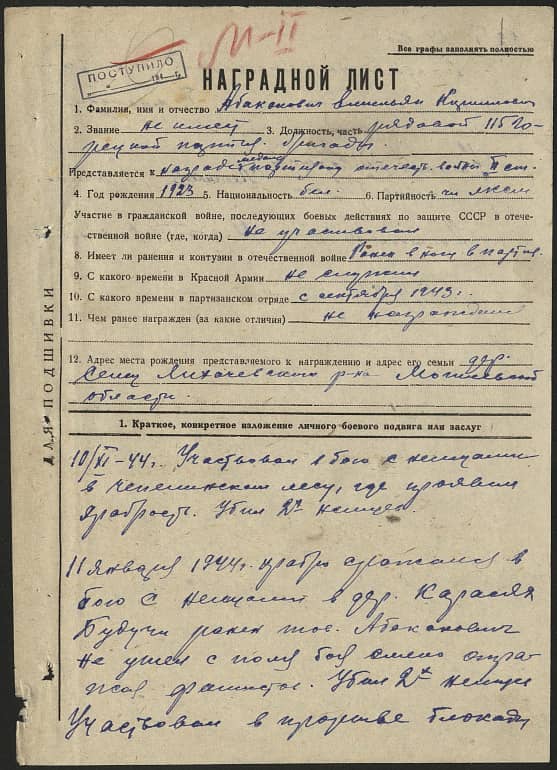 М-II
Все графы заполнять полностью
ПОСТУПИЛО
194 г.
НАГРАДНОЙ ЛИСТ
1. Фамилия, имя и отчество Абаканович Емельян Кириллович
2. Звание не имеет 3. Должность, часть рядовой 115
партиз. бригады
Представляется к медали партизану отечеств. войны II ст.
4. Год рождения 1923 5. Национальность бел. 6. Партийность чл. ЛКСМ
Участие в гражданской войне, последующих боевых действиях по защите СССР в отече-
ственной войне (где, когда) не участвовал
8. Имеет ли ранения и контузии в отечественной войне Ранен в ногу в партиз.
9. С какого времени в Красной Армии не служил
10. С какого времени в партизанском отряде с сентября 1943 г.
11. Чем ранее награжден (за какие отличия) не награжден
12. Адрес места рождения представляемого к награждению и адрес его семьи дер.
р-на Могилевской
области.
ДЛЯ ПОДШИВКИ
1. Краткое, конкретное изложение личного боевого подвига или заслуг
44 г. Участвовал в бою с немцами
в лесу, где проявил
храбрость. Убил 2х немцев
11 января 1944 г. храбро сражался в
бою с немцами в дер.
Будучи ранен тов. Абаканович
не ушел с поля боя смело
фашистов. Убил 2х немцев
Участвовал в прорыве блокады